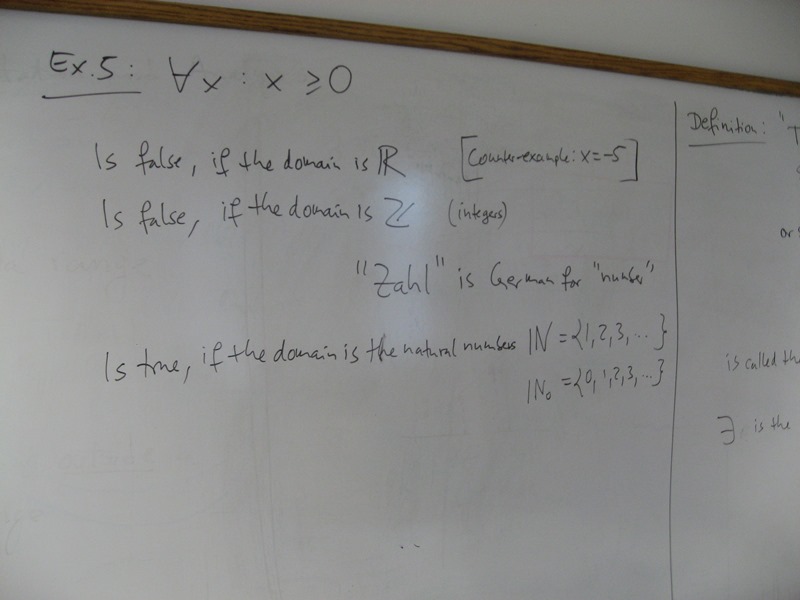 Ex.5: ∀x : x ≥ 0
Is false, if the domain is ℝ [Counter-example: x=-5]
Is false, if the domain is ℤ (integers)
"Zahl" is German for "number"
Is true, if the domain is the natural numbers ℕ = {1, 2, 3, ...}
ℕ₀ = {0, 1, 2, 3, ...}
Definition: "T
or
is called the
∃ is the